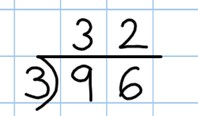 3 2
3)9 6